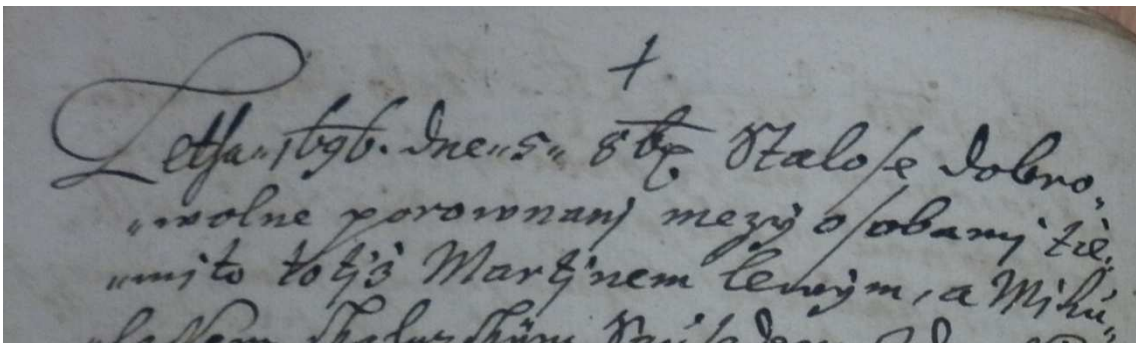 †
Letha 1696. dne 5 8br Stalo se dobro„
„wolne porownanj mezÿ osobamj tie„
„mito totjž Martjnem lewÿm, a Mikú„